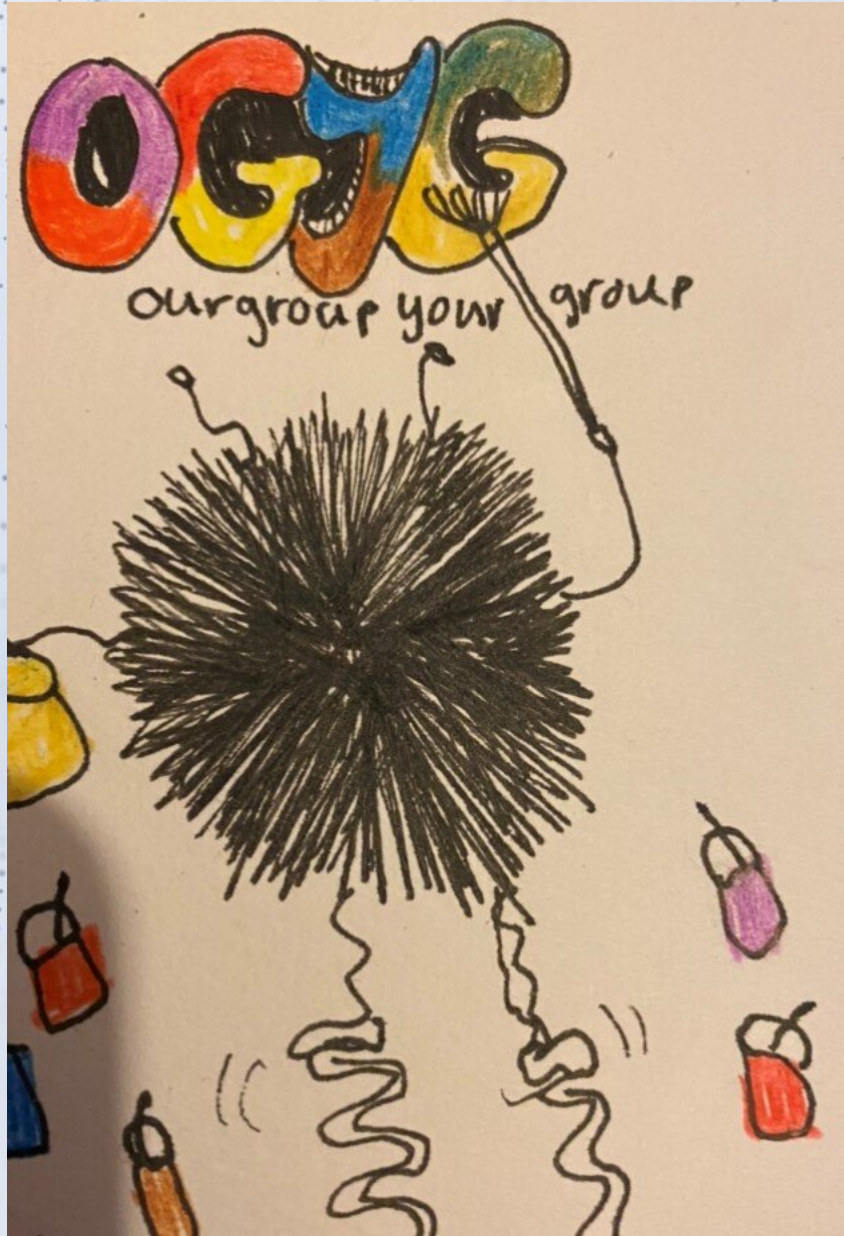 OGYG
ourgroup your group